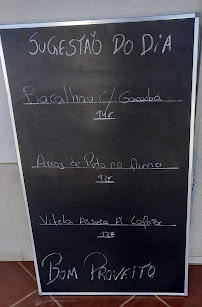 SUGESTÃO DO DIA
Bacalhau c/ Gamba
14€
Arroz de Pato no forno
13€
Vitela Assada À
13€
BOM PROVEITO